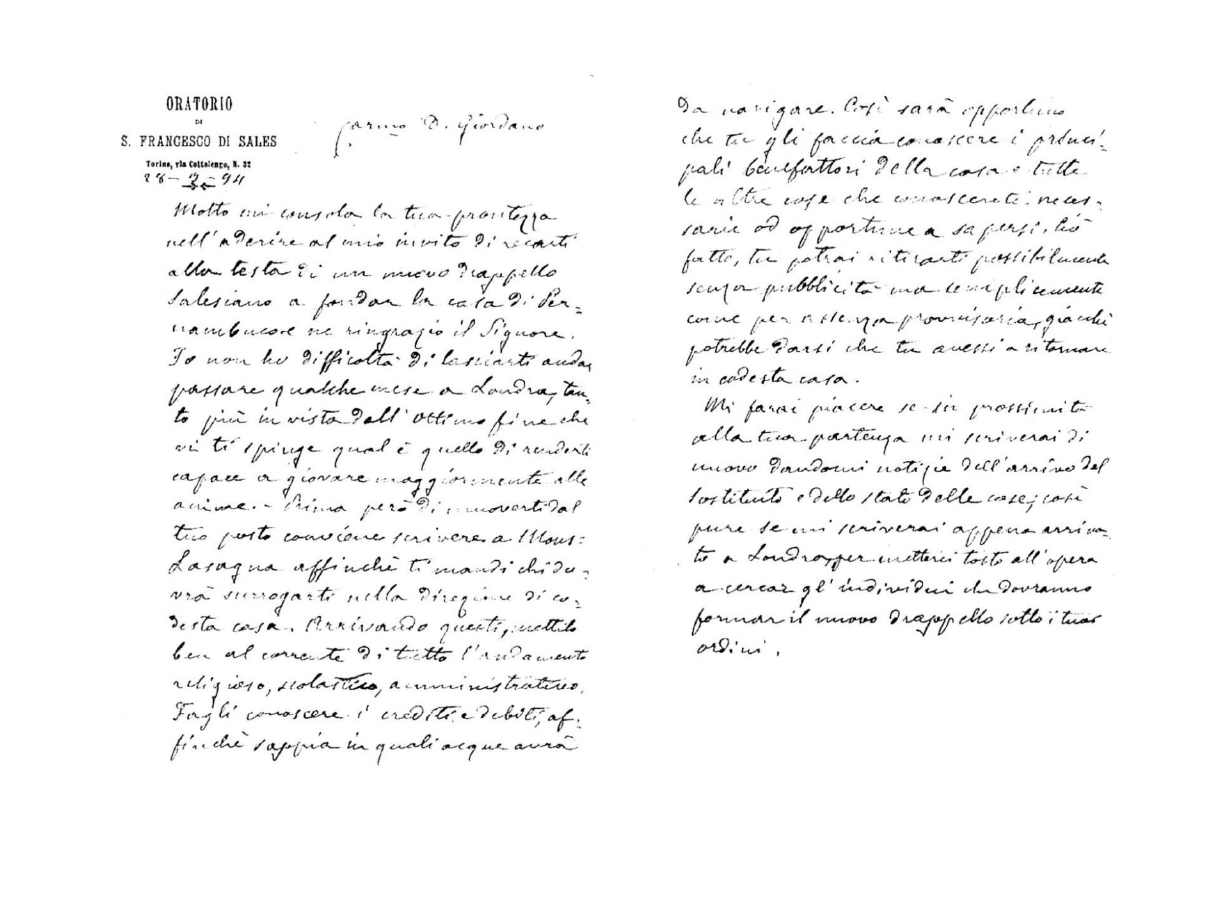 ORATORIO
DI
S. FRANCESCO DI SALES
Torino, via Cottolengo, N. 32
28-3-94
Carmo D. Giordano
Molto mi consola la tua prontezza
nell'aderire al mio invito di recarti
alla testa di un nuovo drappello
salesiano a fondar la casa di Per=
nambuco e ne ringrazio il Signore.
Io non ho difficoltà di lasciarti andar
passare qualche mese a Londra, tan-
to più in vista dell'ottimo fine che
vi ti spinge qual è quello di renderti
capace a giovare maggiormente alle
anime. - Prima però di muoverti dal
tuo posto conviene scrivere a Mons:
Lasagna affinchè ti mandi chi do-
vrà surrogarti nella direzione di co-
desta casa. Arrivando questi, mettilo
ben al corrente di tutto l'andamento
religioso, scolastico, amministrativo.
Fagli conoscere i crediti e debiti, af-
finchè sappia in quali acque avrà
da navigare. Così sarà opportuno
che tu gli faccia conoscere i princi-
pali benefattori della casa e tutte
le altre cose che conoscerete neces-
sarie od opportune a sapersi. Ciò
fatto, tu potrai ritirarti possibilmente
senza pubblicità ma semplicemente
come per assenza provvisoria, giacchè
potrebbe darsi che tu avessi a ritornare
in codesta casa.
Mi farai piacere se in prossimità
alla tua partenza mi scriverai di
nuovo dandomi notizie dell'arrivo del
sostituto e dello stato delle cose; così
pure se mi scriverai appena arriva-
to a Londra, per metterci tosto all'opera
a cercar gl'individui che dovranno
formar il nuovo drappello sotto i tuoi
ordini.